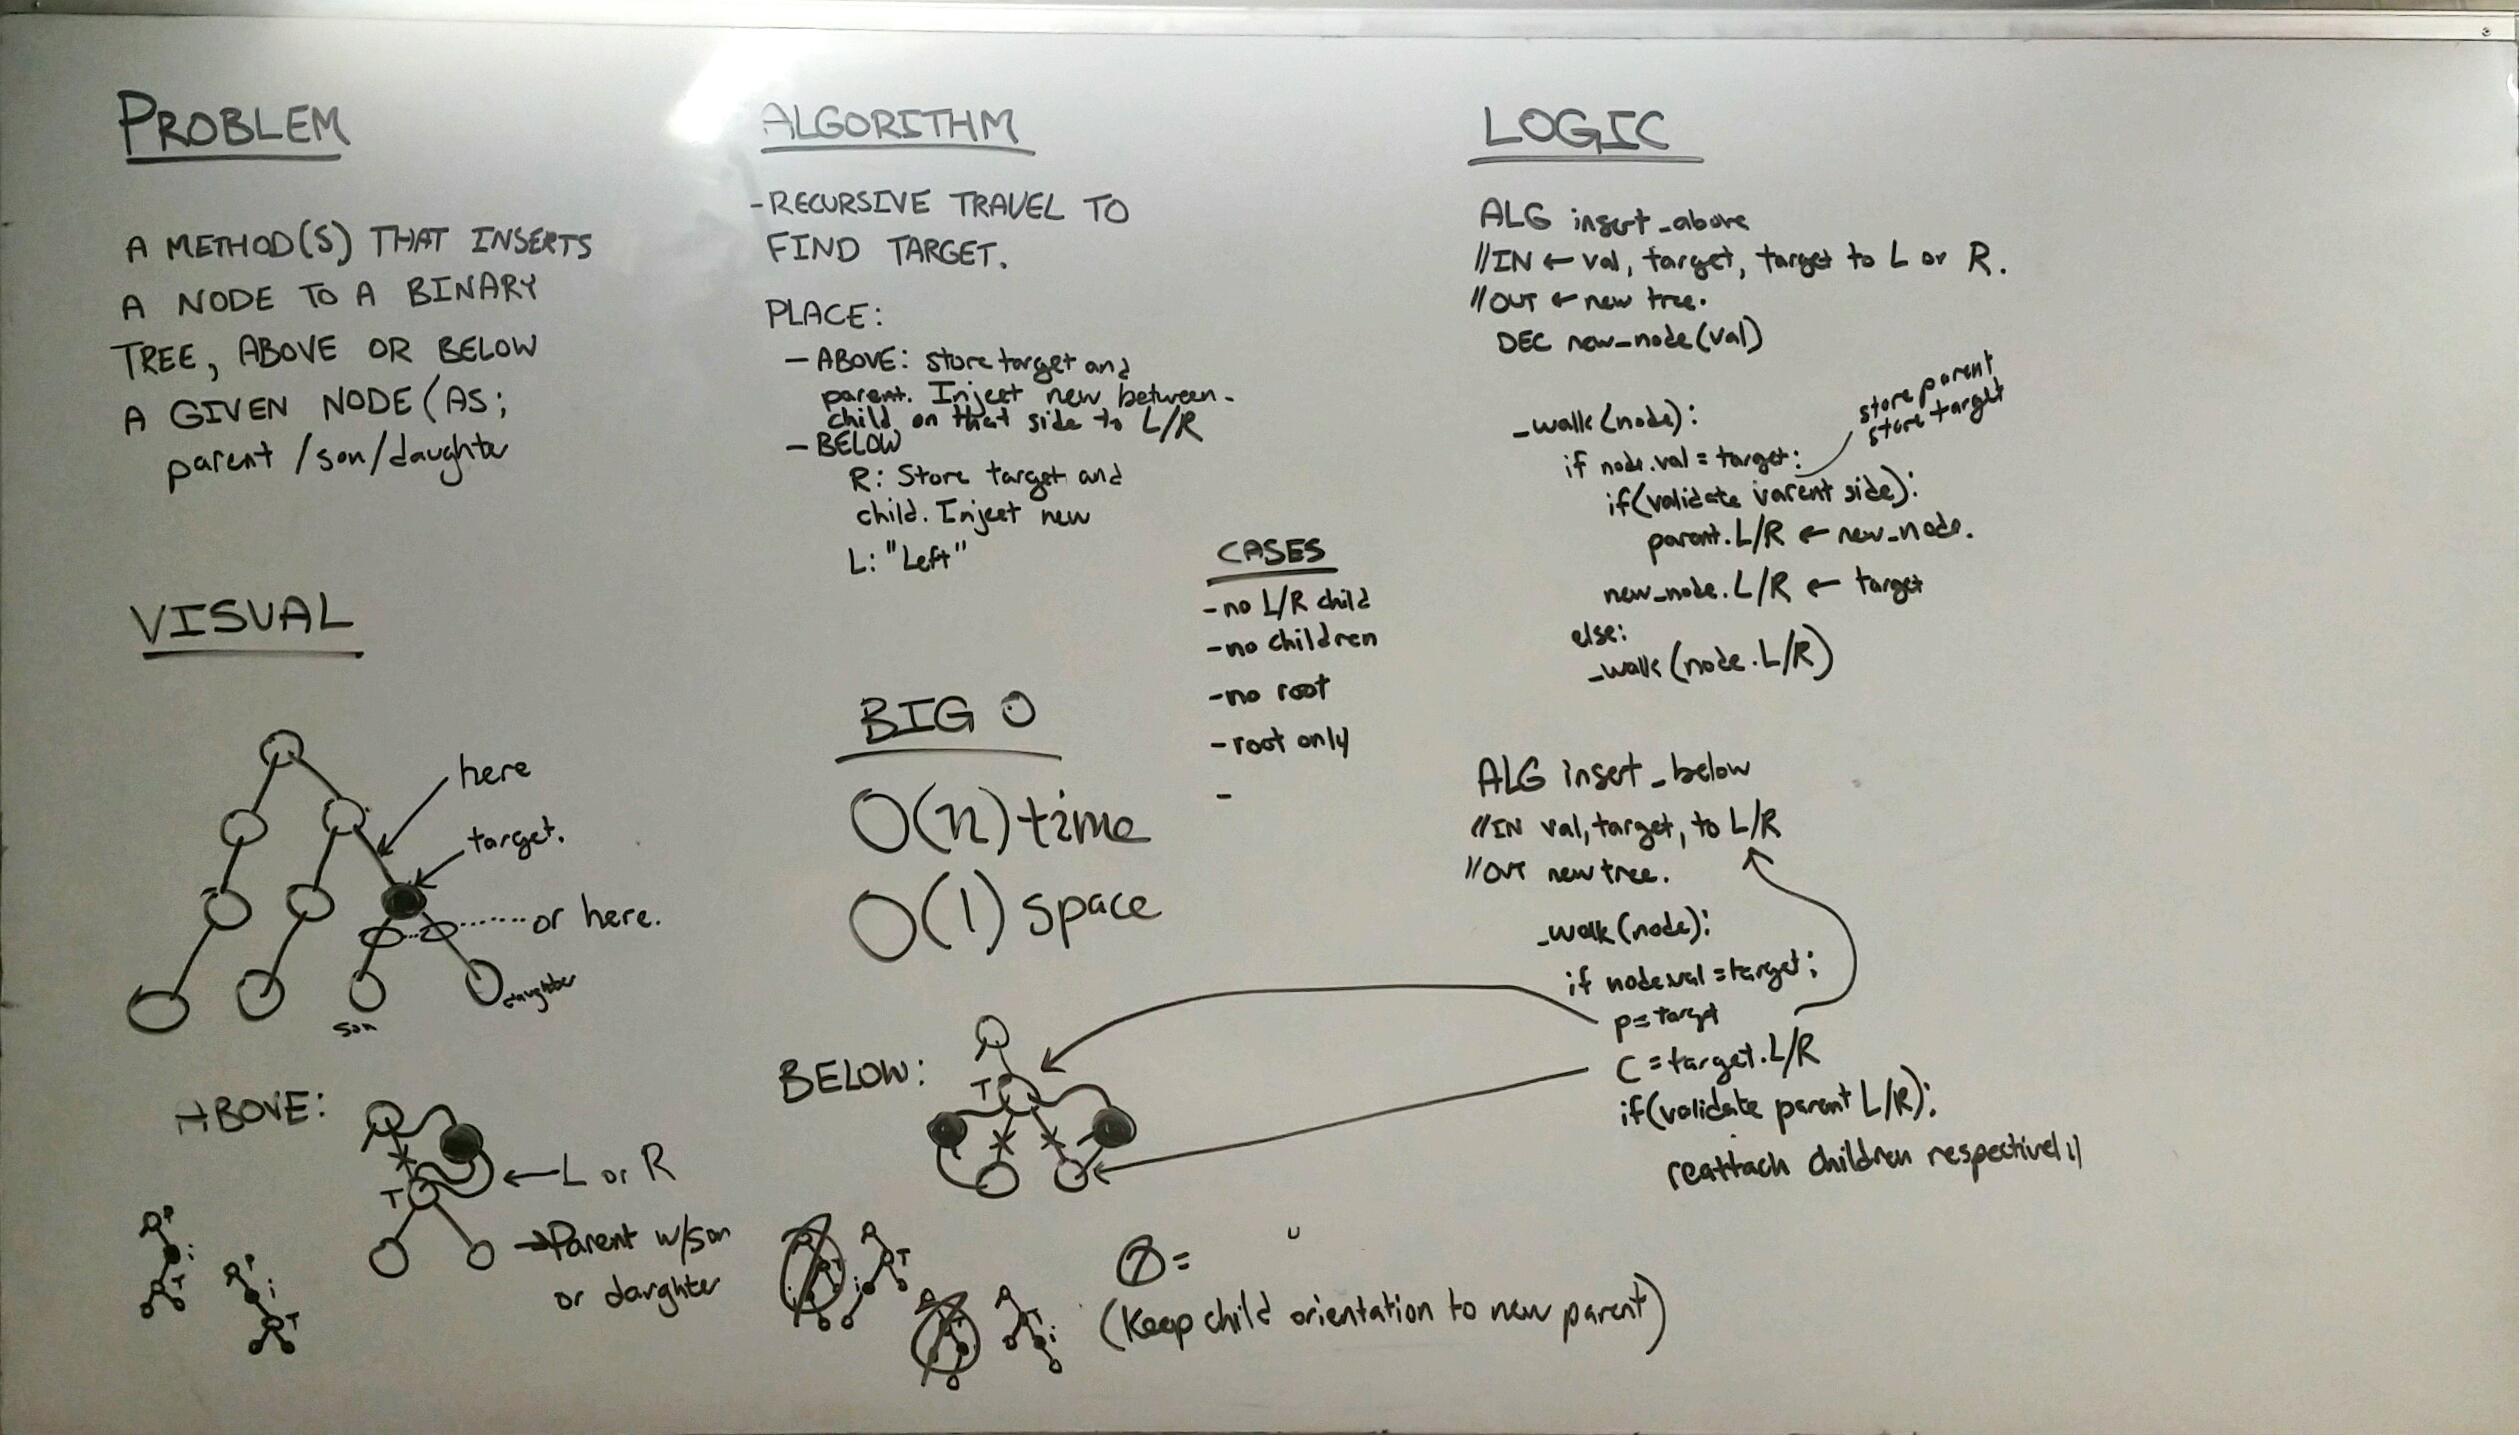 PROBLEM
A METHOD(S) THAT INSERTS
A NODE TO A BINARY
TREE, ABOVE OR BELOW
A GIVEN NODE (AS;
parent /son/daughter
VISUAL
here
target.
or here.
son
daughter
ABOVE:
T
← L or R
→Parent w/son
or daughter
P
i
T
P
i
T
ALGORITHM
-RECURSIVE TRAVEL TO
FIND TARGET.
PLACE:
- ABOVE: store target and
parent. Inject new between.
child on that side to L/R
- BELOW
R: Store target and
child. Inject new
L: "Left"
CASES
-no L/R child
-no children
-no root
-root only
-
BIG O
O(n) time
O(1) space
BELOW:
T
T
i
i
(Keep child orientation to new parent)
LOGIC
ALG insert_above
//IN ← val, target, target to L or R.
//OUT ← new tree.
DEC new_node(val)
store parent
store target
_walk(node):
if node.val = target:
if(validate parent side):
parent.L/R ← new_node.
new_node.L/R ← target
else:
_walk(node.L/R)
ALG insert_below
//IN val, target, to L/R
//OUT new tree.
_walk(node):
if node.val = target:
p = target
C = target.L/R
if(validate parent L/R):
reattach children respectively